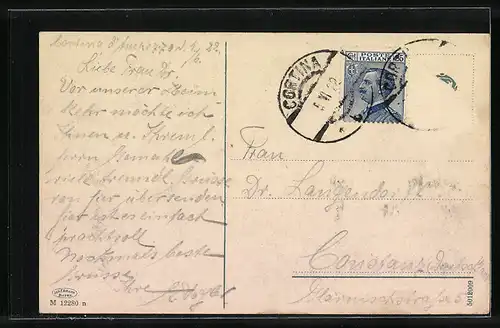 Cortina d'Ampezzo d. 4/6. 22
Liebe Frau Dr.
Vor unserer
kehr möchte ich
Ihnen u. Ihrem l.
Herrn Gemahl
viele freundl. Grüsse
von hier übersenden
hier ist es einfach
prachtvoll
Nochmals beste
Grüsse
Ihre
M 12280 n
CORTINA
VI 22
Frau
Dr. Langendorf
Constanz
5012009